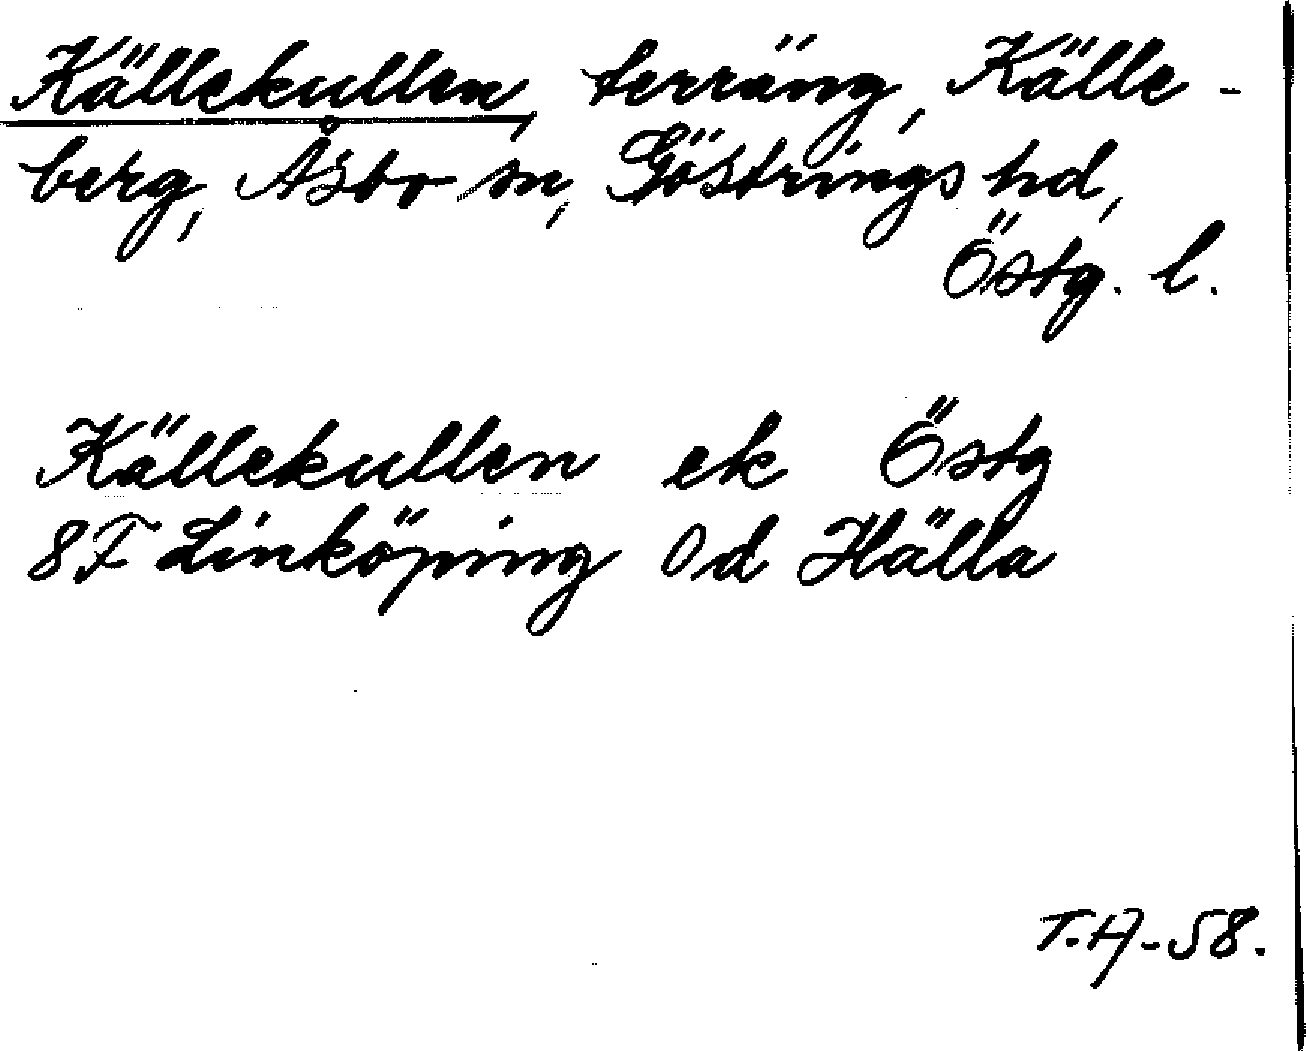 Källekullen, terräng, Källe-
berg, Åsbo sn, Göstrings hd,
Östg. l.
Källekullen ek Östg
8F Linköping 0d Hälla
T.A-58.